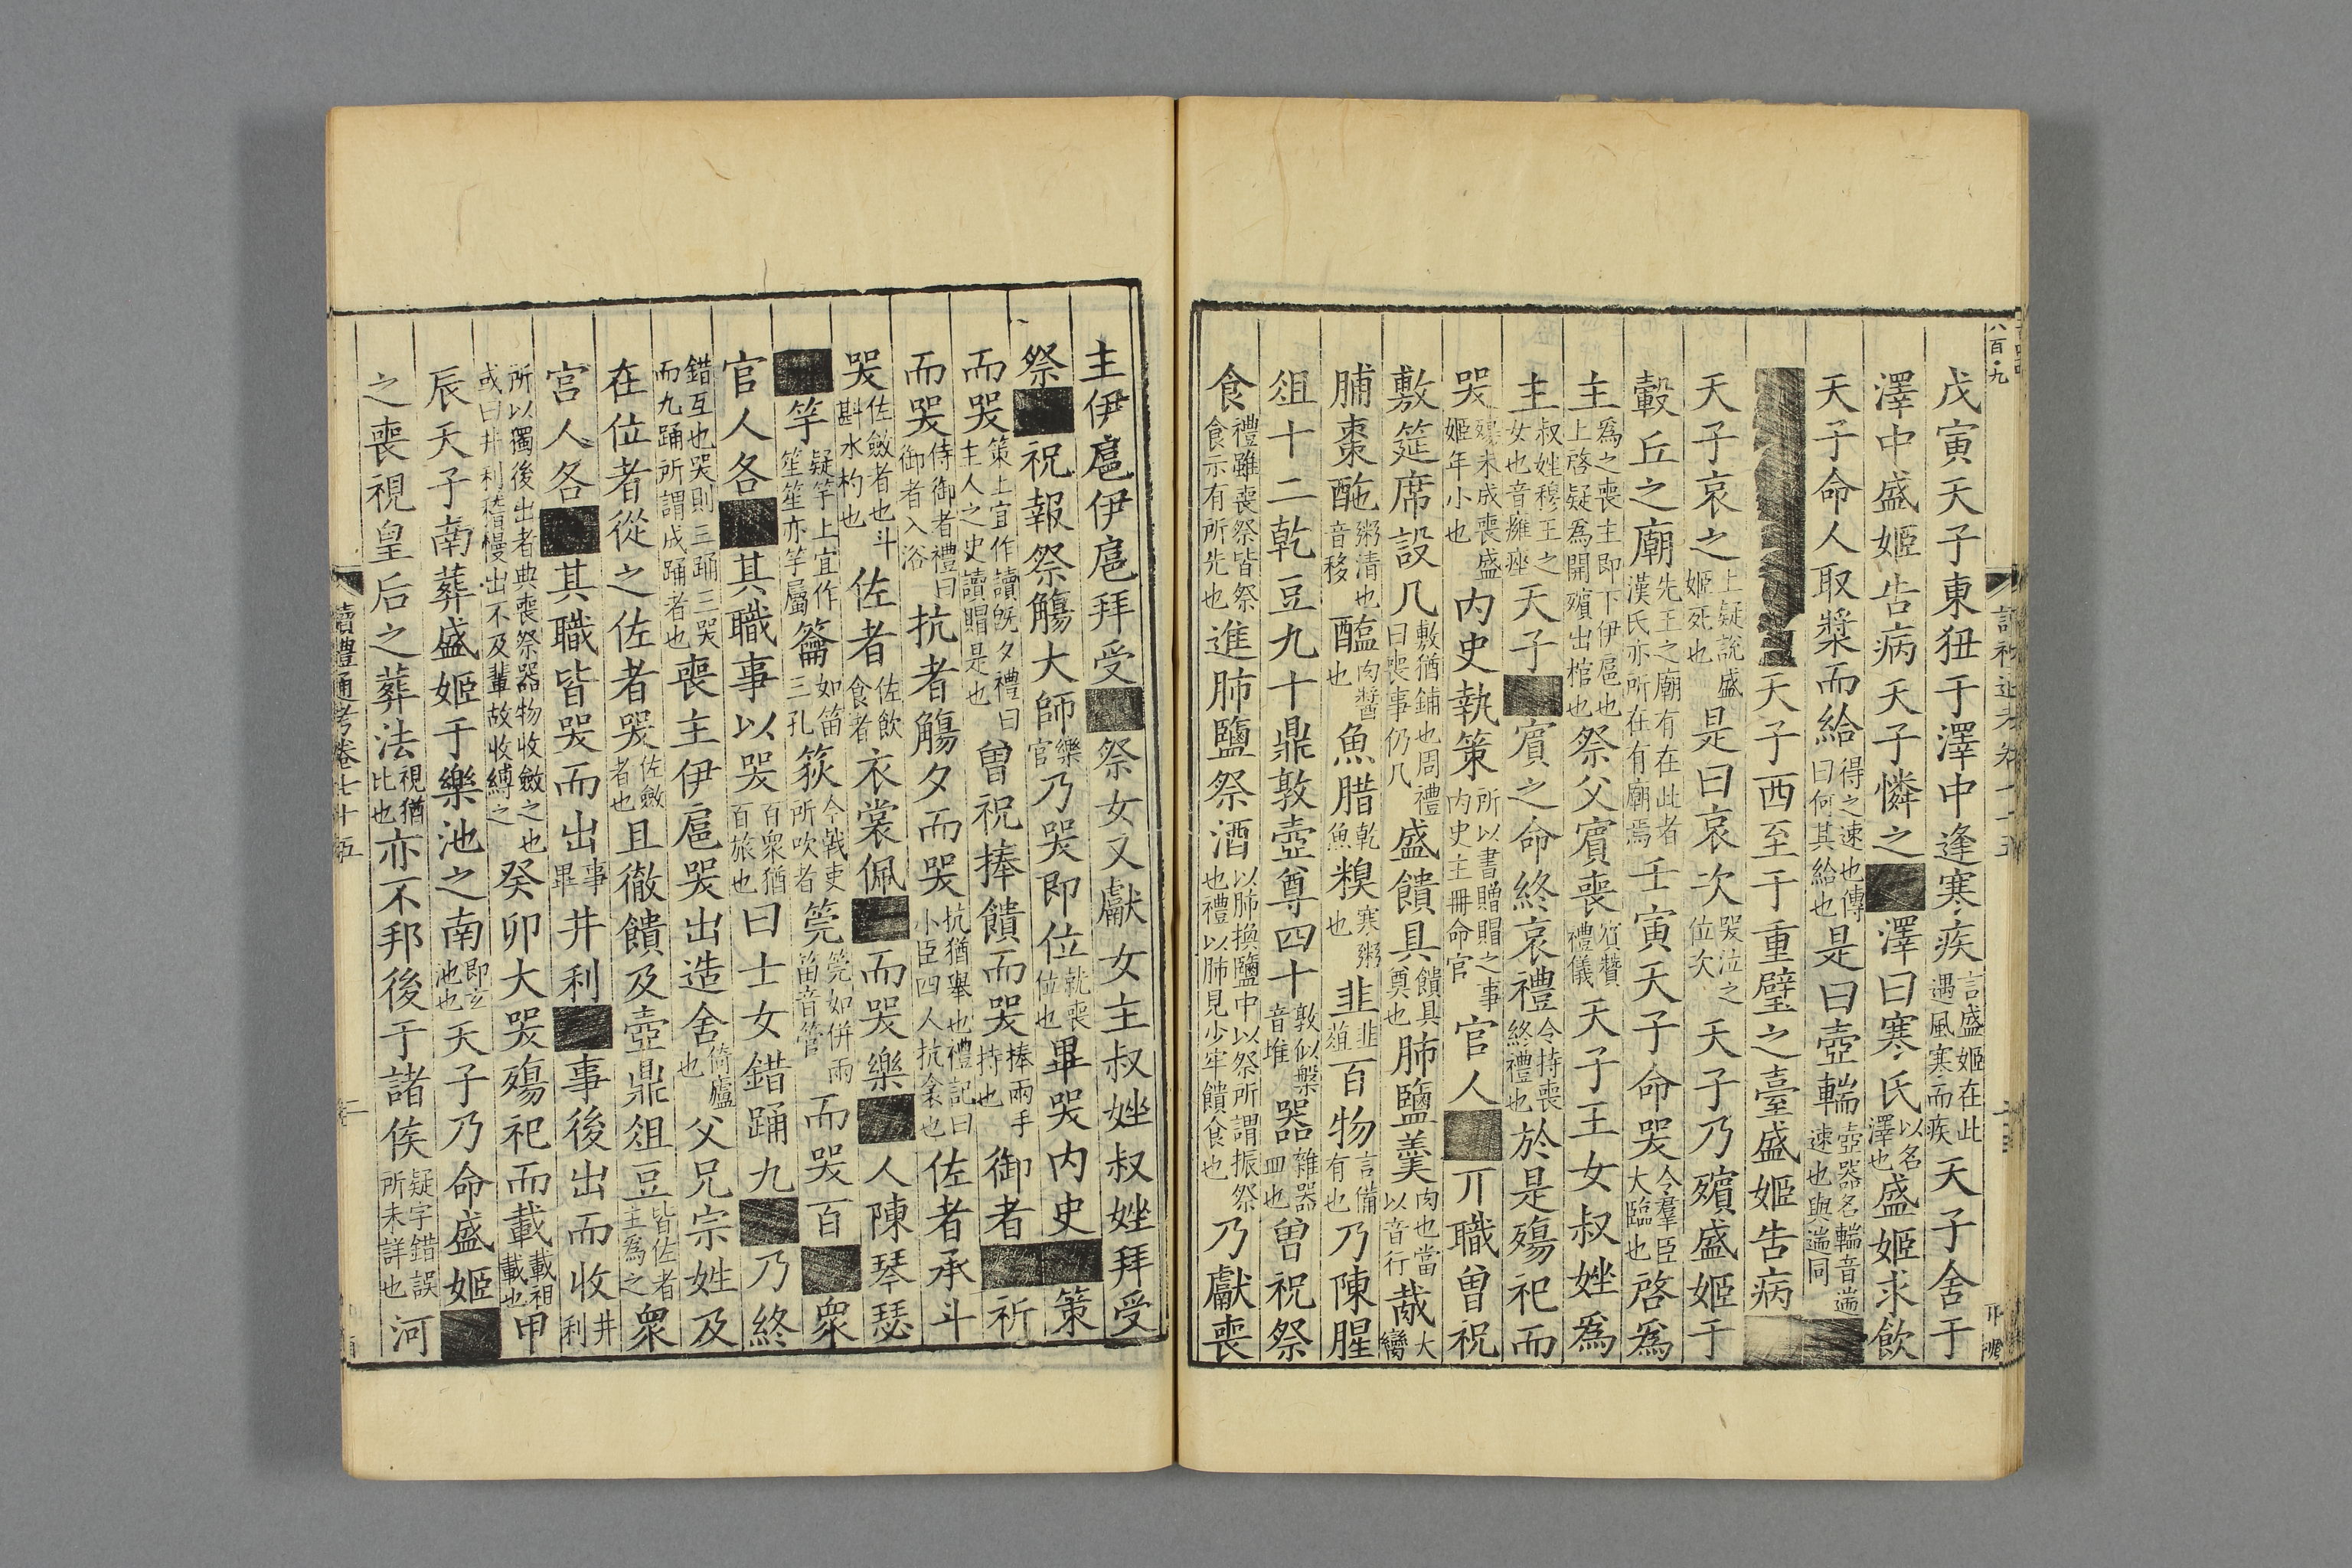 戊寅天子東狃于澤中逢寒疾言盛姬在此遇風寒而疾天子舍于
澤中盛姬告病天子憐之■澤曰寒氏以名澤也盛姬求飲
天子命人取漿而給得之速也傳曰何其給也是曰壺輲壺器名輲音遄速也與遄同■
■天子西至于重璧之臺盛姬告病■
天子哀之上疑說盛姬死也是曰哀次哭泣之位次天子乃殯盛姬于
轂丘之廟先王之廟有在此者漢氏亦所在有廟焉壬寅天子命哭令羣臣大臨也啓爲
主爲之喪主即下伊扈也上啓疑爲開殯出棺也祭父賓喪賓贊禮儀天子王女叔㛗爲
主叔姓穆王之女也音癰痤天子■賓之命終哀禮令持喪終禮也於是殤祀而
哭殤未成喪盛姬年小也内史執策所以書贈賵之事内史主冊命官官人■丌職曾祝
敷筵席設几敷猶鋪也周禮曰喪事仍几盛饋具饋具奠也肺鹽羹肉也當以音行胾大臠
脯棗䤄粥清也音移醢肉醬也魚腊乾魚糗寒粥也韭韭葅百物言備有也乃陳腥
俎十二乾豆九十鼎敦壺尊四十敦似盤音堆器雜器皿也曾祝祭
食禮雖喪祭皆祭食示有所先也進肺鹽祭酒以肺換鹽中以祭所謂振祭也禮以肺見少牢饋食也乃獻喪
主伊扈伊扈拜受■祭女又獻女主叔㛗叔㛗拜受
祭■祝報祭觴大師樂官乃哭即位就喪位也畢哭内史■策
而哭策上宜作讀既夕禮曰主人之史讀賵是也曾祝捧饋而哭捧兩手持也御者■祈
而哭侍御者禮曰御者入浴抗者觴夕而哭抗猶舉也禮記曰小臣四人抗衾也佐者承斗
哭佐斂者也斗斟水杓也佐者佐飲食者衣裳佩■而哭樂■人陳琴瑟
■竽疑竽上宜作笙笙亦竽屬籥如笛三孔荻今戟吏所吹者筦筦如併兩笛音管而哭百■衆
官人各■其職事以哭百衆猶百旅也曰士女錯踊九■乃終
錯互也哭則三踊三哭而九踊所謂成踊者也喪主伊扈哭出造舍倚廬也父兄宗姓及
在位者從之佐者哭佐斂者也且徹饋及壺鼎俎豆皆佐者主爲之衆
宮人各■其職皆哭而出事畢井利■事後出而收井利
所以獨後出者典喪祭器物收斂之也或曰井利稽慢出不及輩故收縛之癸卯大哭殤祀而載載祖載也甲
辰天子南葬盛姬于樂池之南即玄池也天子乃命盛姬■
之喪視皇后之葬法視猶比也亦不邦後于諸侯疑字錯誤所未詳也河
讀禮通考卷七十五
二